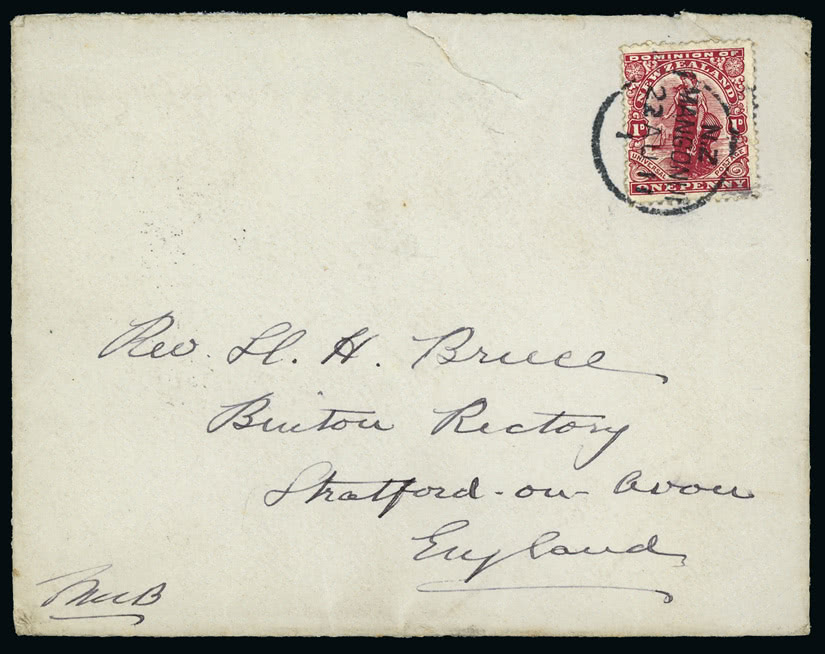 DOMINION OF
NEW ZEALAND
1D 1D
UNIVERSAL POSTAGE
ONE PENNY
N.Z
MANGONUI
Rev. Ll. H. Bruce
Binton Rectory
Stratford-on-Avon
England